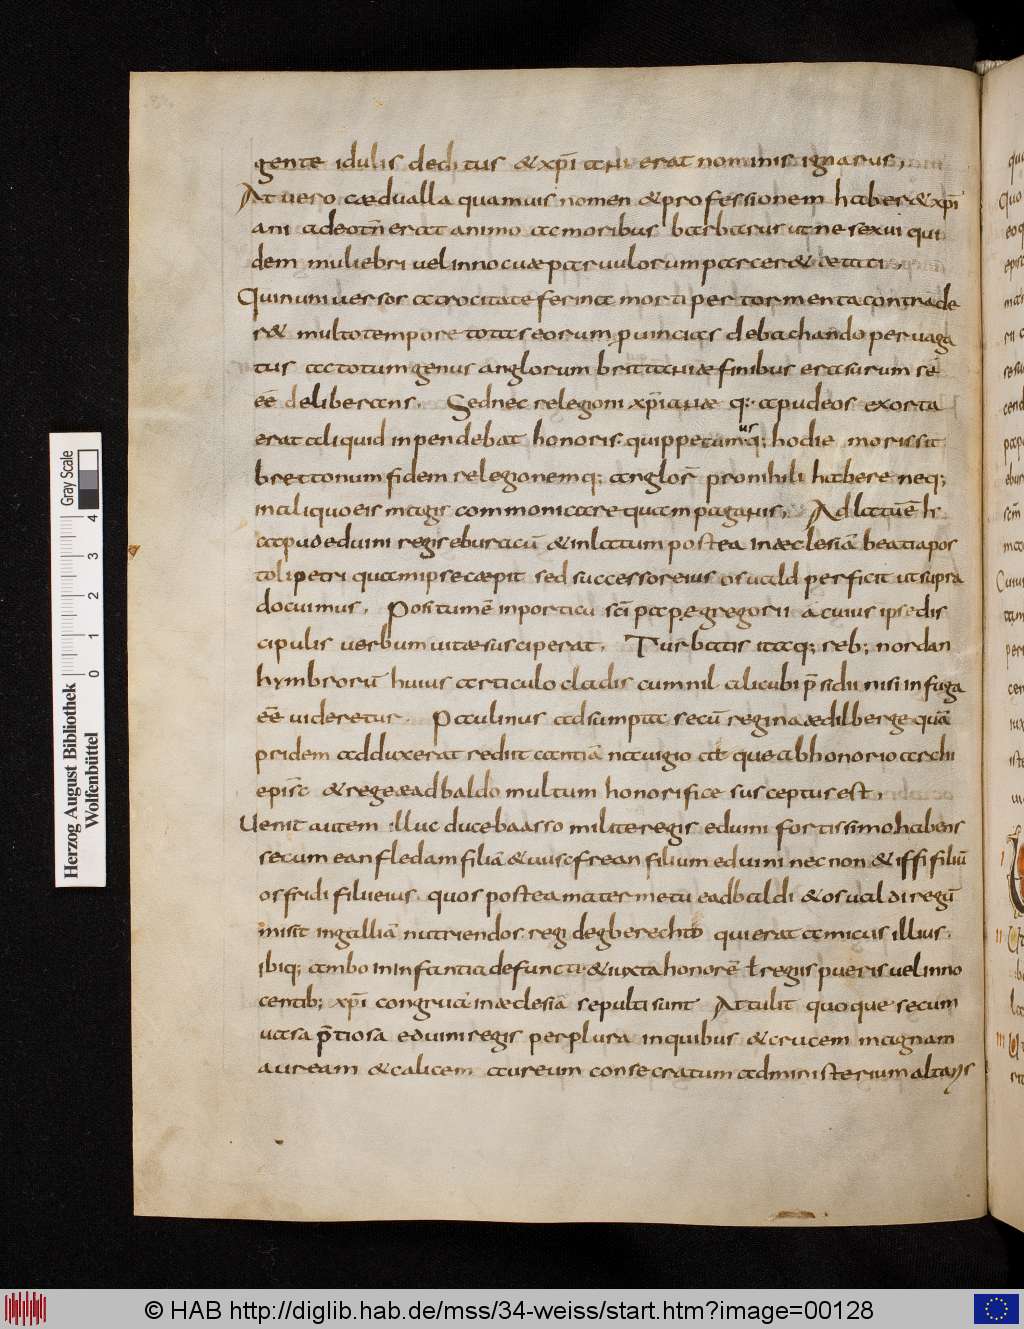 gente idulis deditus & xp̄iani erat nominis ignarus;
At uero cædualla quamuis nomen & professionem haber& xp̄i
ani adeo tn̄ erat animo ac moribus barbarus ut ne sexui qui
dem muliebri uel innocuæ paruulorum parcer& ætati.
Quin uniuersos atrocitate ferina morti per tormenta contrade
r& multo tempore totas eorum puincias debachando peruaga
tus ac totum genus anglorum brittaniæ finibus erasurum sē
eē deliberans. Sed nec relegioni xp̄ianæ q: apud eos exorta
erat aliquid inpendebat honoris. quippe cum usq; hodie moris sit
brettonum fidem relegionemq; anglor̄ pro nihili habere neq;
in aliquo eis magis commonicare quam paganis; Adlatū ē h.
caput eduini regis eburacū & inlatum postea in æclesiā beati apos
toli petri quam ipse cæpit sed successor eius osuuald perficit ut supra
docuimus. Positum ē in porticu sc̄i papę gregorii a cuius ipse dis
cipulis uerbum uitæ susciperat. Turbatis itaq; reb; nordan
hymbrorū huius articulo cladis cum nil alicubi p̄sidii nisi in fuga
eē uideretur. Paulinus adsumpta secū regina ædilberge quā
pridem adduxerat rediit cantiā nauigio atque ab honorio archi
episc̄ & rege æadbaldo multum honorifice susceptus est;
Uenit autem illuc duce baasso milite regis eduini fortissimo habens
secum eanfledam filiā & uuscfrean filium eduini nec non & iffi filiū
osfridi filii eius. quos postea mater metu eadbaldi & osuualdi regū
misit in galliā nutriendos regi degberechto qui erat amicus illius.
ibiq; ambo in infantia defuncti & iuxta honorē ł regiis pueris uel inno
centib; xp̄i congruū in æclesiā sepulti sunt Attulit quoque secum
uasa p̄tiosa eduini regis perplura in quibus & crucem magnam
auream & calicem aureum consecratum ad ministerium altaris
Herzog August Bibliothek
Wolfenbüttel
0 1 2 3 4
Gray Scale
© HAB http://diglib.hab.de/mss/34-weiss/start.htm?image=00128